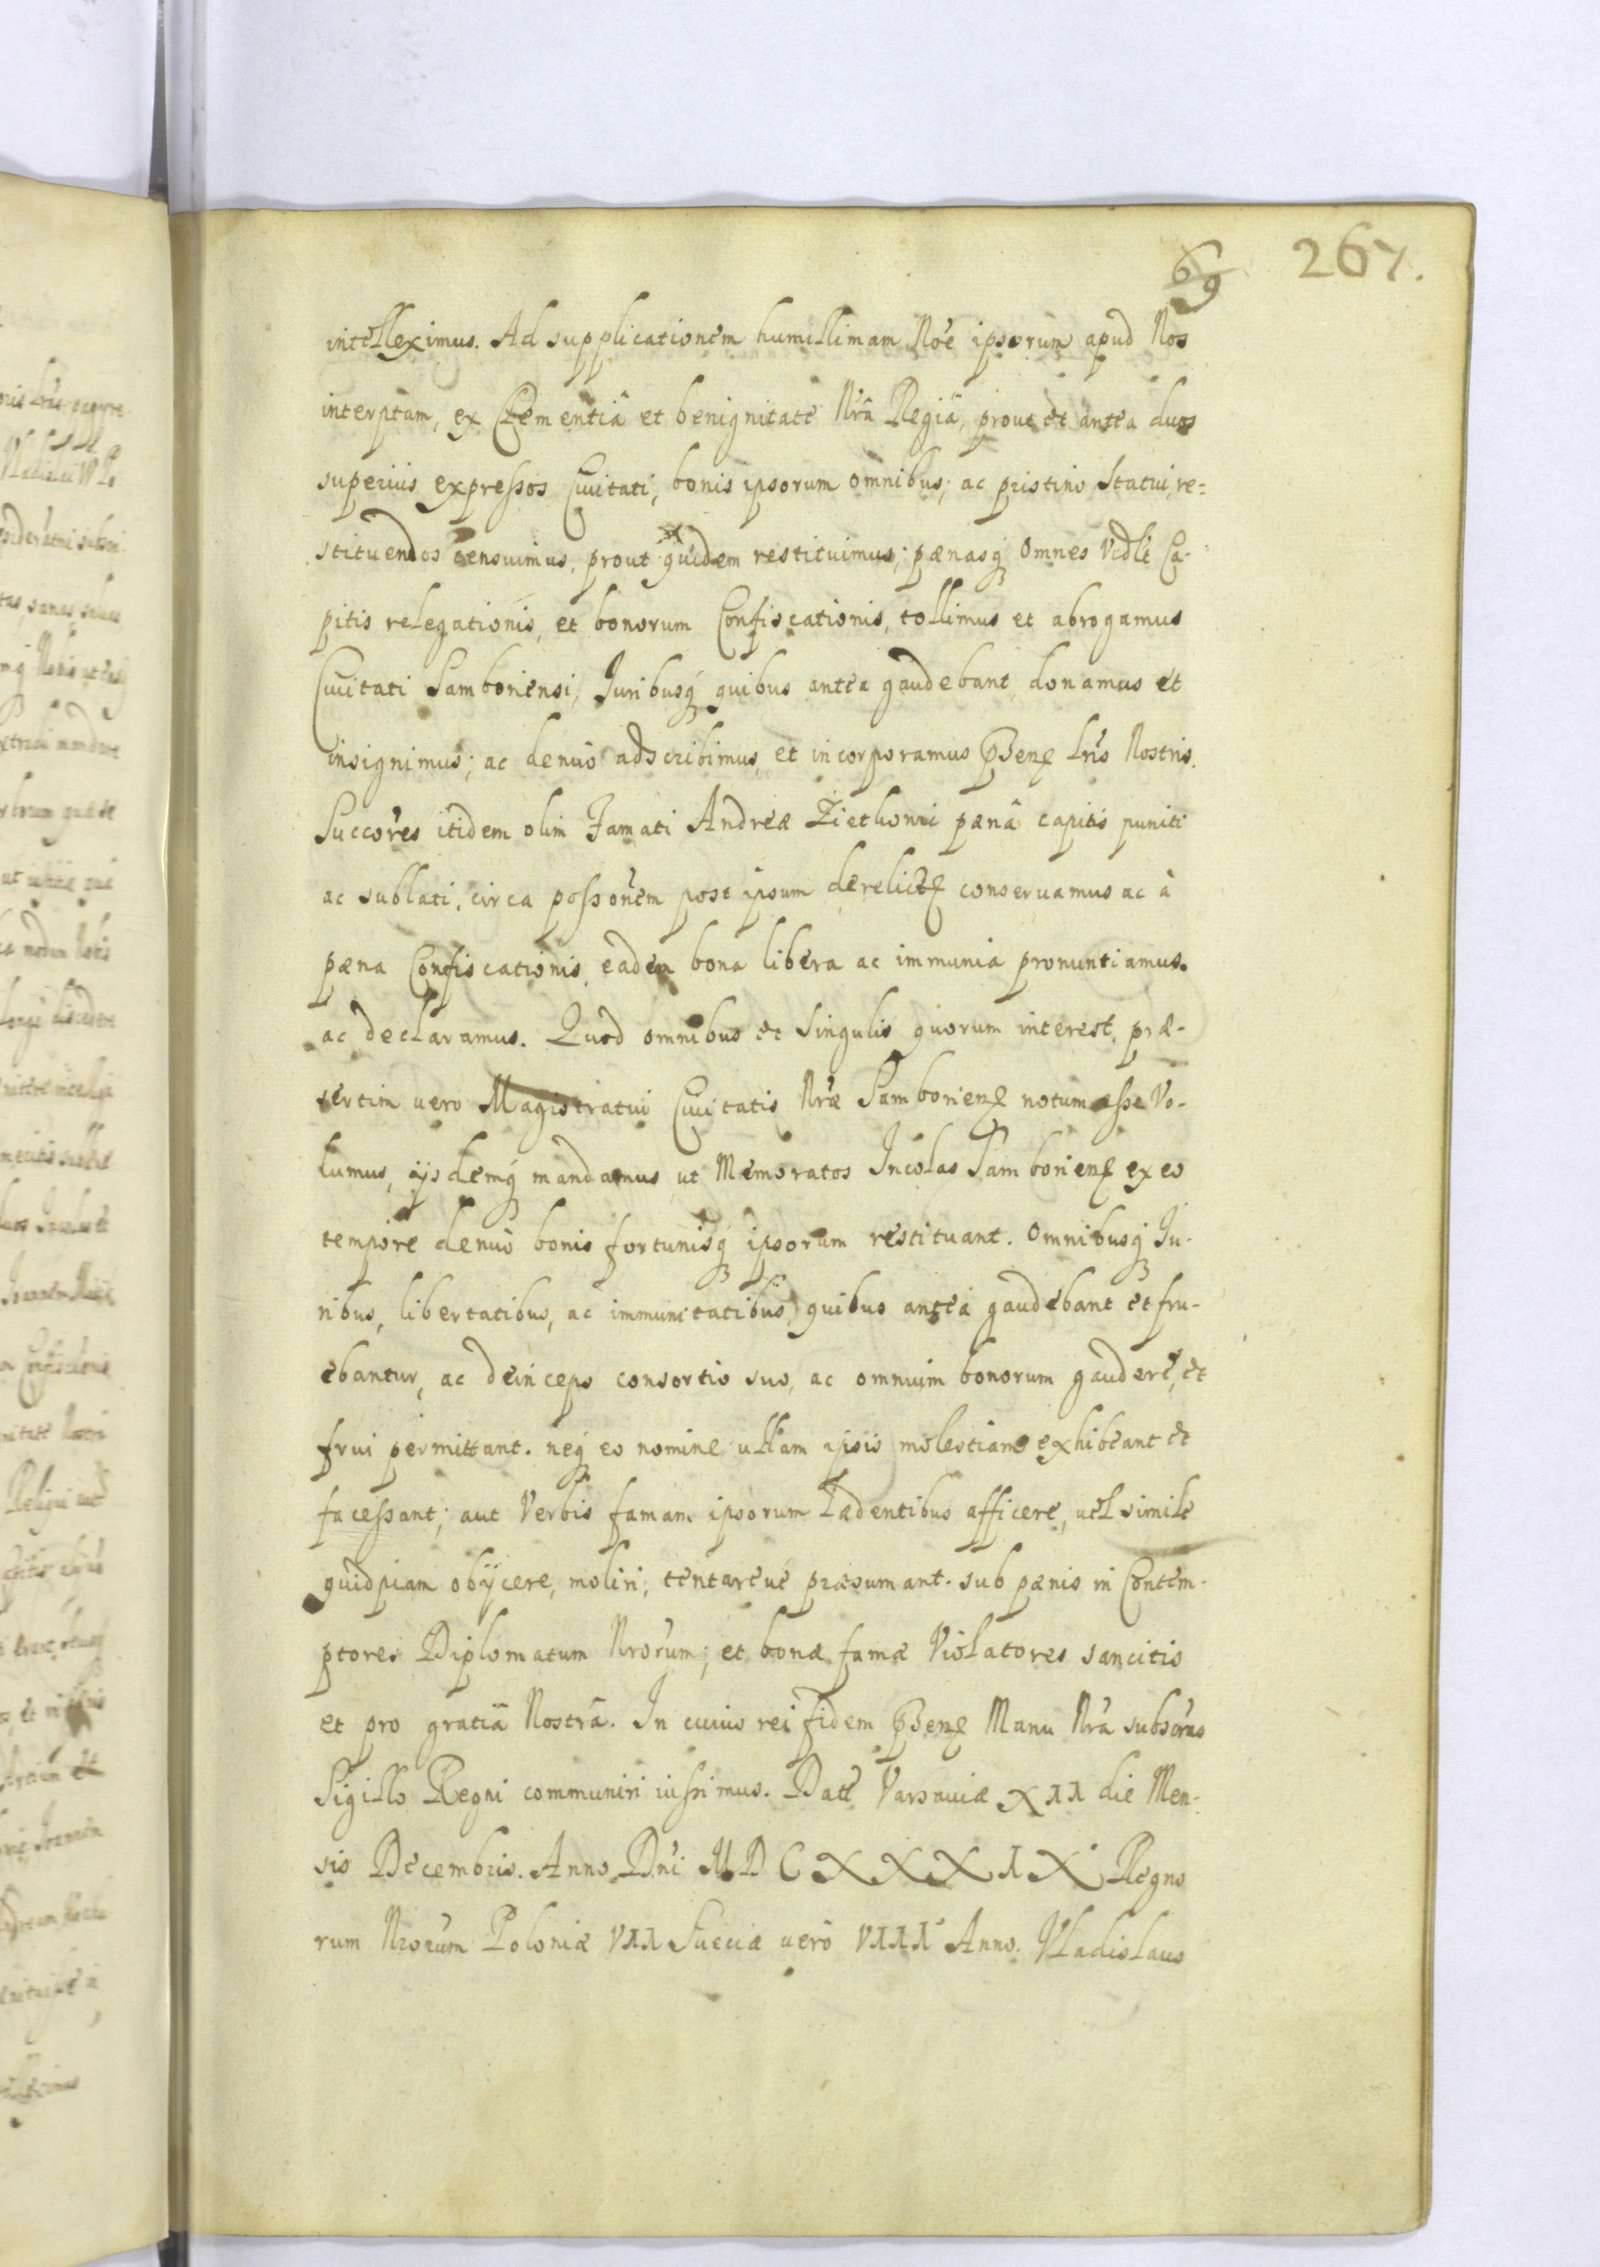 69 267.
intelleximus. Ad supplicationem humillimam Noe ipsorum apud Nos
interptam, ex Clementiâ et benignitate Nrâ Regiâ, prout et antea duos
superius expressos Civitati, bonis ipsorum omnibus, ac pristino statui, re=
stituendos censuimus, prout quidem restituimus; pænasq omnes Vidlt Ca-
pitis relegationis, et bonorum Confiscationis, tollimus et abrogamus
Civitati Samboriensi, Juribusq quibus antea gaudebant, donamus et
insignimus; ac denuò adscribimus, et incorporamus pñtibus Lris Nostris.
Succores itidem olim Famati Andreæ pænâ capitis puniti
ac sublati, circa possonem post ipsum derelictæ conservamus ac à
pæna Confiscationis eadem bona libera ac immunia pronuntiamus.
ac declaramus. Quod omnibus et singulis quorum interest, præ-
sertim vero Magistratui Civitatis Nræ Samborien notum esse Vo-
lumus, ijsdemq mandamus ut Memoratos Incolas Samborien ex eo
tempore denuò bonis fortunisq ipsorum restituant. Omnibusq Ju-
ribus, libertatibus, ac immunitatibus, quibus antea gaudebant et fru-
ebantur, ac deinceps consortio suo, ac omnium bonorum gaudere, et
frui permittant. neq eo nomine ullam ipsis molestiam exhibeant et
facessant; aut Verbis famam ipsorum lædentibus afficere, vel simile
quidpiam obijcere, moliri, tentareve præsumant. sub pænis in Contem-
ptores Diplomatum Nrorum, et bonæ famæ Violatores sancitis
et pro gratiâ Nostrâ. In cuius rei fidem Manu Nrâ subscras
Sigillo Regni communiri iussimus. Datt Varsaviæ XII die Men-
sis Decembris. Anno Dni MDCXXXIX Regno
rum Nrorum Poloniæ VII Sueciæ verò VIII Anno. Vladislaus